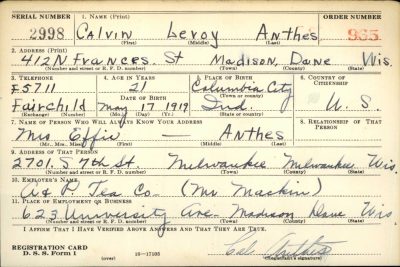 SERIAL NUMBER 1. NAME (Print) ORDER NUMBER
2998 Calvin Leroy Anthes 965
(First) (Middle) (Last)
2. ADDRESS (Print)
412 N Frances. St Madison, Dane Wis.
(Number and street or R. F. D. number) (Town) (County) (State)
3. TELEPHONE 4. AGE IN YEARS 5. PLACE OF BIRTH 6. COUNTRY OF CITIZENSHIP
F5711 21 Columbia City
DATE OF BIRTH (Town or county)
Fairchild May 17 1919 Ind. U. S.
(Exchange) (Number) (Mo.) (Day) (Yr.) (State or country)
7. NAME OF PERSON WHO WILL ALWAYS KNOW YOUR ADDRESS 8. RELATIONSHIP OF THAT PERSON
Mrs. Effie — Anthes
(Mr., Mrs., Miss) (First) (Middle) (Last)
9. ADDRESS OF THAT PERSON
2701. S 7th St. Milwaukee Milwaukee Wis.
(Number and street or R. F. D. number) (Town) (County) (State)
10. EMPLOYER'S NAME
A & P. Tea Co. (Mr Mackin)
11. PLACE OF EMPLOYMENT OR BUSINESS
623 University Ave. Madison Dane Wis
(Number and street or R. F. D. number) (Town) (County) (State)
I AFFIRM THAT I HAVE VERIFIED ABOVE ANSWERS AND THAT THEY ARE TRUE.
REGISTRATION CARD
D. S. S. Form 1 (over) 16—17105 Cal Anthes
(Registrant's signature)